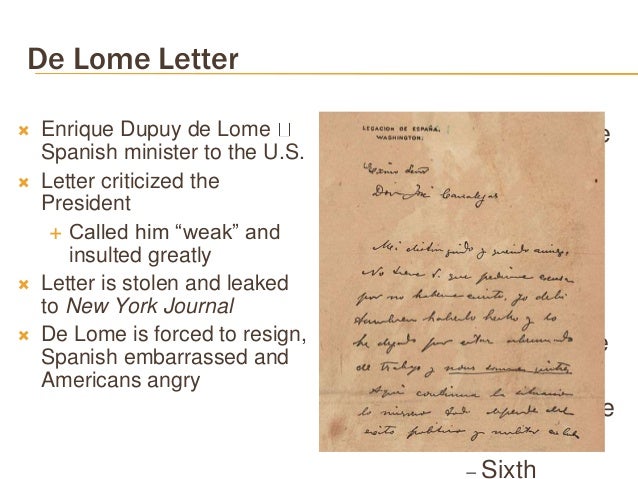 De Lome Letter
Enrique Dupuy de Lome
Spanish minister to the U.S.
Letter criticized the
President
Called him “weak” and
insulted greatly
Letter is stolen and leaked
to New York Journal
De Lome is forced to resign,
Spanish embarrassed and
Americans angry
LEGACION DE ESPAÑA.
WASHINGTON.
Exmo Señor
Don José Canalejas
Mi distinguido y querido amigo,
No tiene V. que pedirme excusa
por no haberme escrito, yo debí
tambien haberlo hecho y lo
he dejado por estar abrumado
de trabajo y nous sommes quittes.
Aquí continua la situacion
lo mismo. Todo depende del
exito politico y militar en Cuba
e
e
e
– Sixth